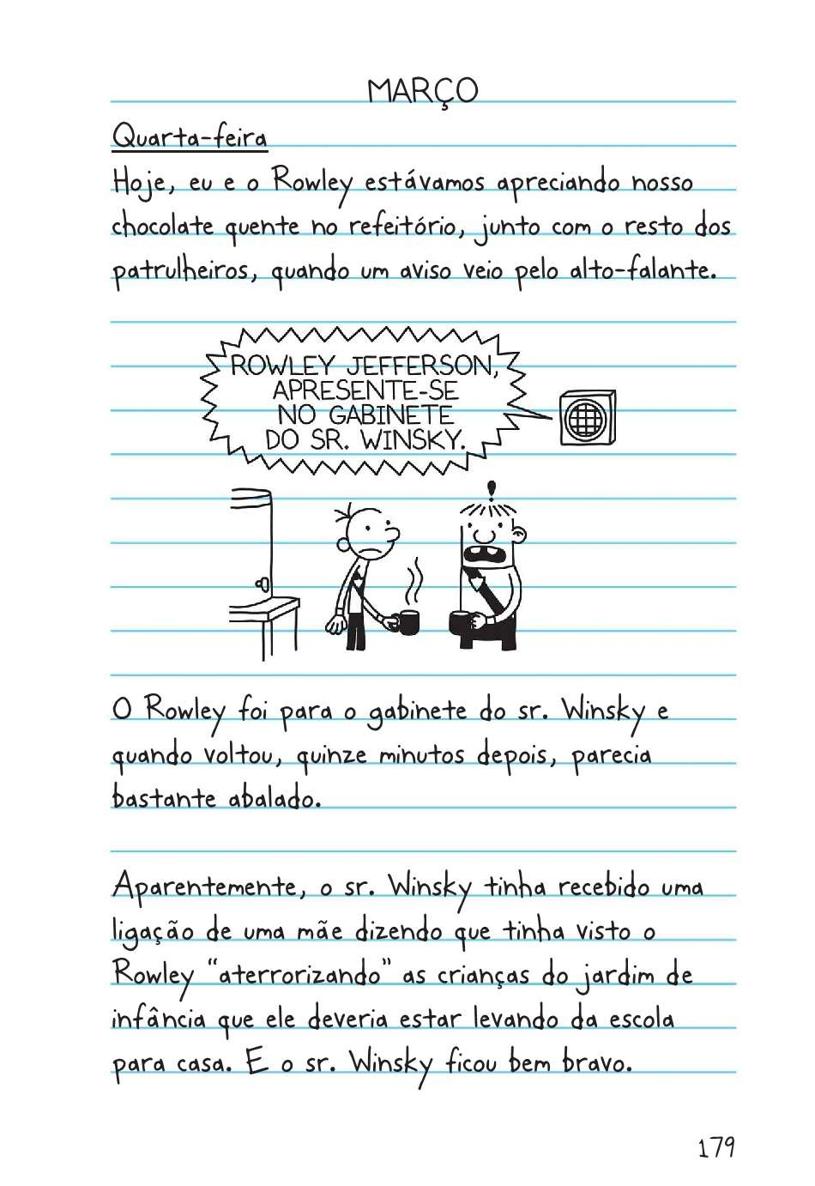 MARÇO
Quarta-feira
Hoje, eu e o Rowley estávamos apreciando nosso
chocolate quente no refeitório, junto com o resto dos
patrulheiros, quando um aviso veio pelo alto-falante.
ROWLEY JEFFERSON,
APRESENTE-SE
NO GABINETE
DO SR. WINSKY.
!
O Rowley foi para o gabinete do sr. Winsky e
quando voltou, quinze minutos depois, parecia
bastante abalado.
Aparentemente, o sr. Winsky tinha recebido uma
ligação de uma mãe dizendo que tinha visto o
Rowley “aterrorizando” as crianças do jardim de
infância que ele deveria estar levando da escola
para casa. E o sr. Winsky ficou bem bravo.
179